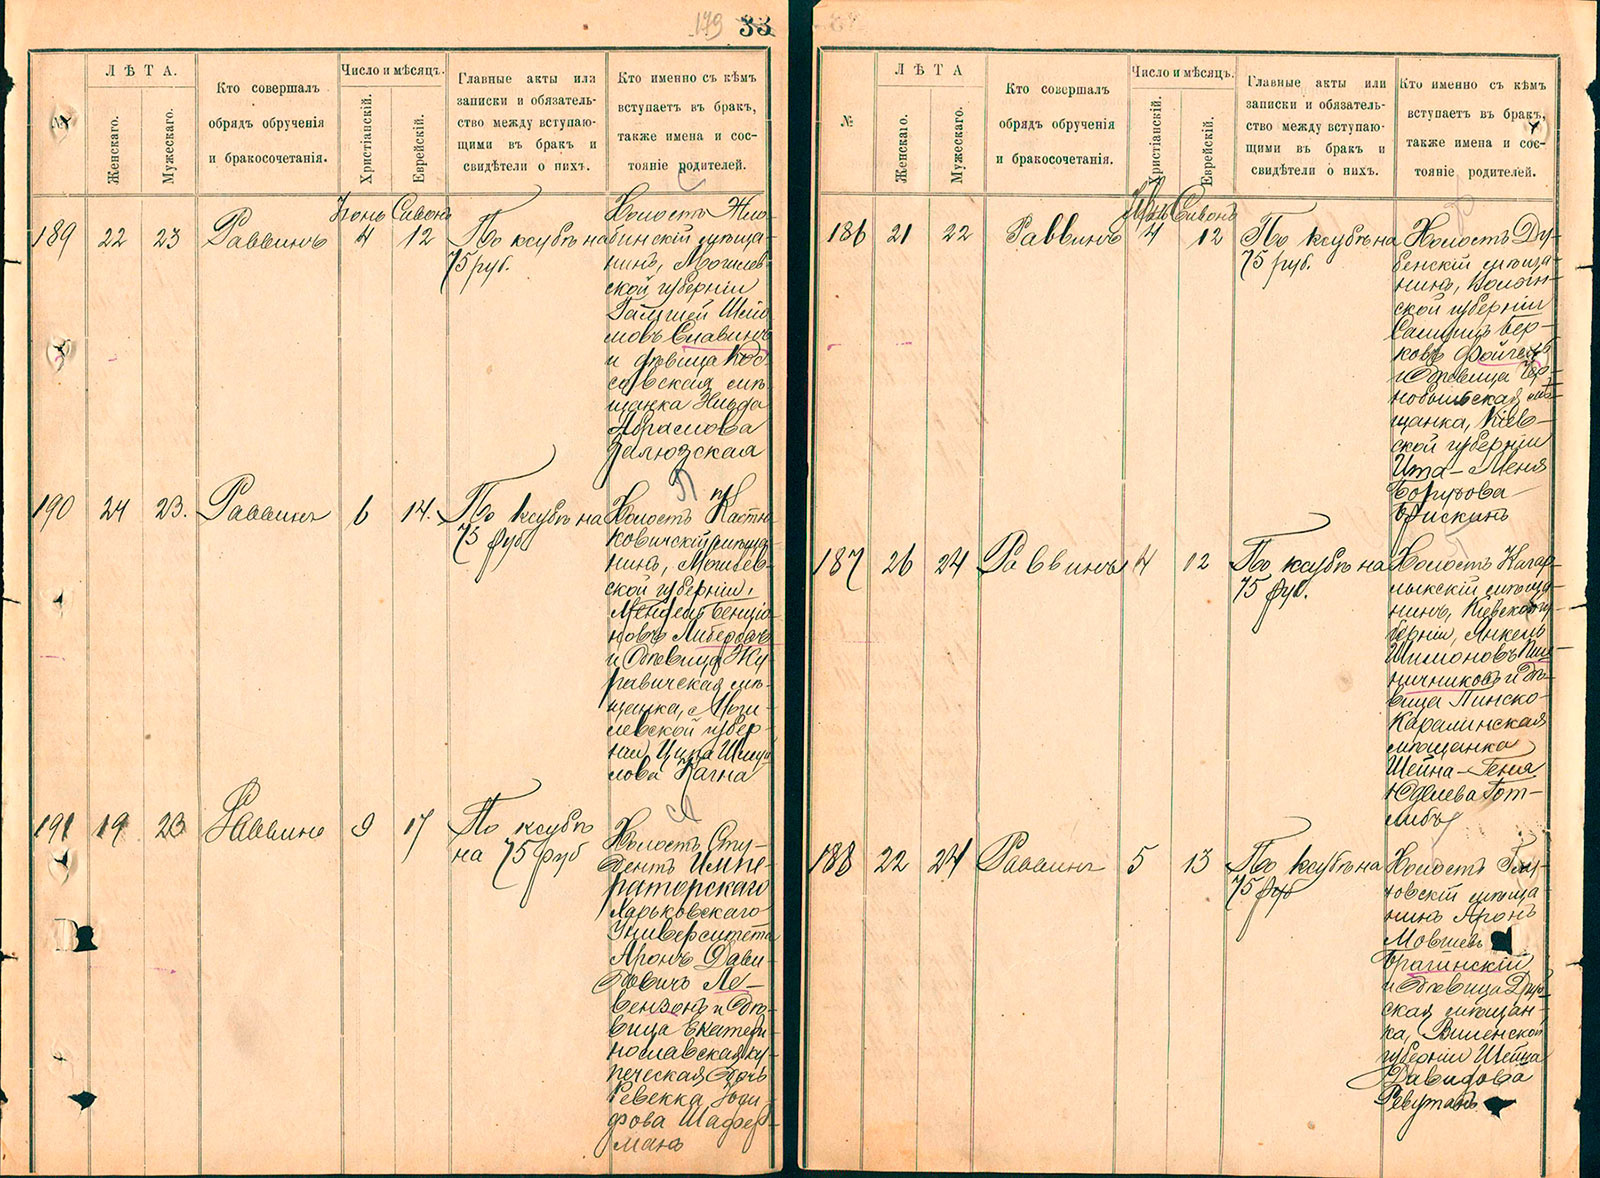 179 33
ЛѢТА.
Число и мѣсяцъ.
№
Женскаго.
Мужескаго.
Кто совершалъ
обрядъ обрученія
и бракосочетанія.
Христіанскій.
Еврейскій.
Главные акты или
записки и обязатель-
ство между вступаю-
щими въ бракъ и
свидѣтели о нихъ.
Кто именно съ кѣмъ
вступаетъ въ бракъ,
также имена и сос-
тояніе родителей.
Іюнь Сивонъ
189 22 23 Раввинъ 4 12 По ксубѣ на
75 руб.
Холостъ Жло-
бинскій мѣща-
нинъ, Могилев-
ской губерніи
Шліо-
мовъ Славинъ
и дѣвица
мѣ-
щанка
Абрамова
Залюзская
190 24 23. Раввинъ 6 14. По ксубѣ на
75 руб
Холостъ Кастю-
ковичскій мѣща-
нинъ, Могилев-
ской губерніи,
Мендель Бенціа-
новъ
и дѣвица Жу-
равичская мѣ-
щанка, Моги-
левской губер-
ніи, Ципа Шмуй-
лова Кагна
191 19 23 Раввинъ 9 17 По ксубѣ
на 75 руб
Холостъ Сту-
дентъ Импе-
раторскаго
Харьковскаго
Университета
Аронъ Дави-
довичъ Ле-
вензонъ и дѣ-
вица Екатери-
нославская ку-
печеская дочь
Ревекка Іоси-
фова Шафер-
манъ
ЛѢТА
Число и мѣсяцъ.
№
Женскаго.
Мужескаго.
Кто совершалъ
обрядъ обрученія
и бракосочетанія.
Христіанскій.
Еврейскій.
Главные акты или
записки и обязатель-
ство между вступаю-
щими въ бракъ и
свидѣтели о нихъ.
Кто именно съ кѣмъ
вступаетъ въ бракъ,
также имена и сос-
тояніе родителей.
Іюнь Сивонъ
186 21 22 Раввинъ 4 12 По ксубѣ на
75 руб.
Холостъ Ду-
бенскій мѣща-
нинъ, Волын-
ской губерніи
Бер-
ковъ
и дѣвица Чер-
нобыльская мѣ-
щанка, Кіев-
ской губерніи
Ита-Меня
Борухова
Брискинъ
187 26 24 Раввинъ 4 12 По ксубѣ на
75 руб.
Холостъ Кагар-
лыкскій мѣща-
нинъ, Кіевской гу-
берніи, Янкель
Шимоновъ Пше-
ничниковъ и дѣ-
вица Пинско-
Каралинская
мѣщанка
Шейна-Геня
Юделева Гот-
либъ
188 22 24 Раввинъ 5 13 По ксубѣ на
75 руб
Холостъ Глу-
ховскій мѣща-
нинъ Аронъ
Мовшевъ
Брагинскій
и дѣвица Друй-
ская мѣщан-
ка, Виленской
губерніи Шейна
Давидова
Ревутанъ